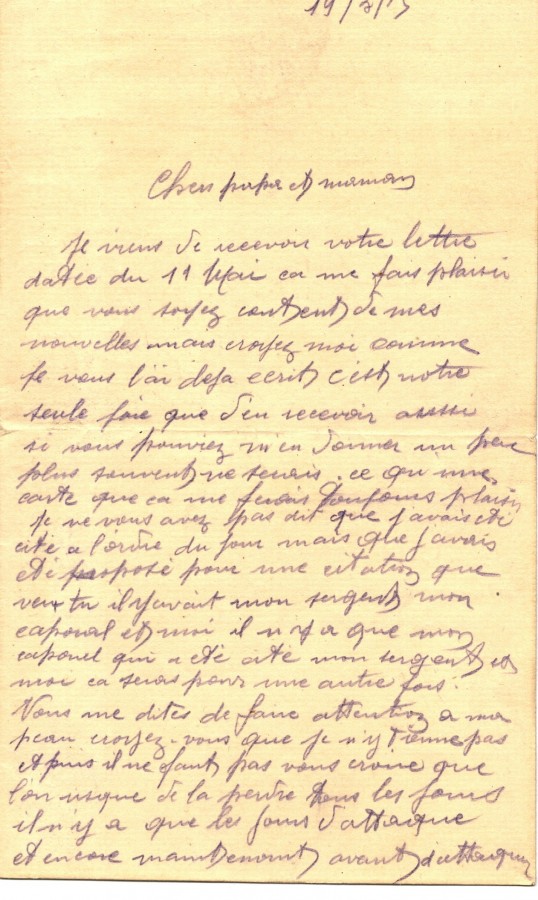 Chers papa et maman
Je viens de recevoir votre lettre
datée du 11 Mai ca me fais plaisir
que vous soyez content de mes
nouvelles mais croyez moi comme
Je vous l'ai deja ecrit c'est notre
seule joie que d'en recevoir aussi
si vous pouviez m'en donner un peu
plus souvent ne serais ce qu'une
carte que ca me ferais toujours plaisir
Je ne vous avez pas dit que j'avais été
cité a l'ordre du jour mais que j'avais
été proposé pour une citation que
veux tu il y avait mon sergent mon
caporal et moi il n'y a que mon
caporal qui a été cité mon sergent et
moi ca seras pour une autre fois.
Vous me dites de faire attention a ma
peau croyez-vous que je n'y tienne pas
et puis il ne faut pas vous croire que
l'on risque de la perdre tous les jours
il n'y a que les jours d'attaque
et encore maintenant avant d'attaquer